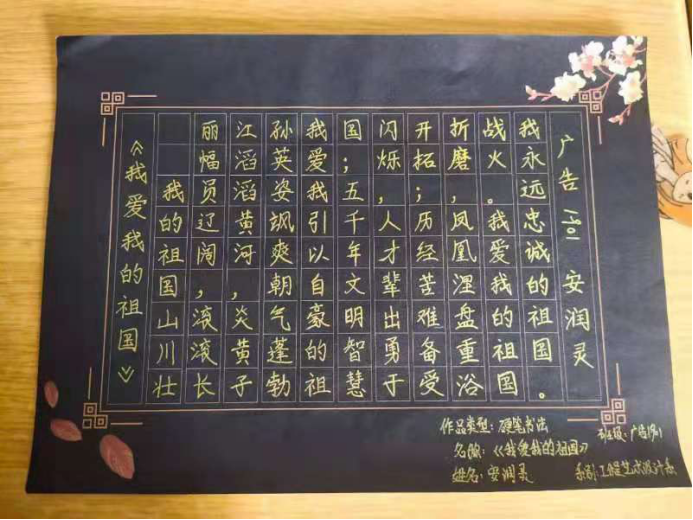 《我爱我的祖国》
我的祖国山川壮
丽幅员辽阔，滚滚长
江滔滔黄河，炎黄子
孙英姿飒爽朝气蓬勃
我爱我引以自豪的祖
国；五千年文明智慧
闪烁，人才辈出勇于
开拓；历经苦难备受
折磨，凤凰涅盘重浴
战火。我爱我的祖国
我永远忠诚的祖国。
广告1901 安润灵
作品类型：硬笔书法 班级：广告1901
名称：《我爱我的祖国》
姓名：安润灵 系别：工程艺术设计系